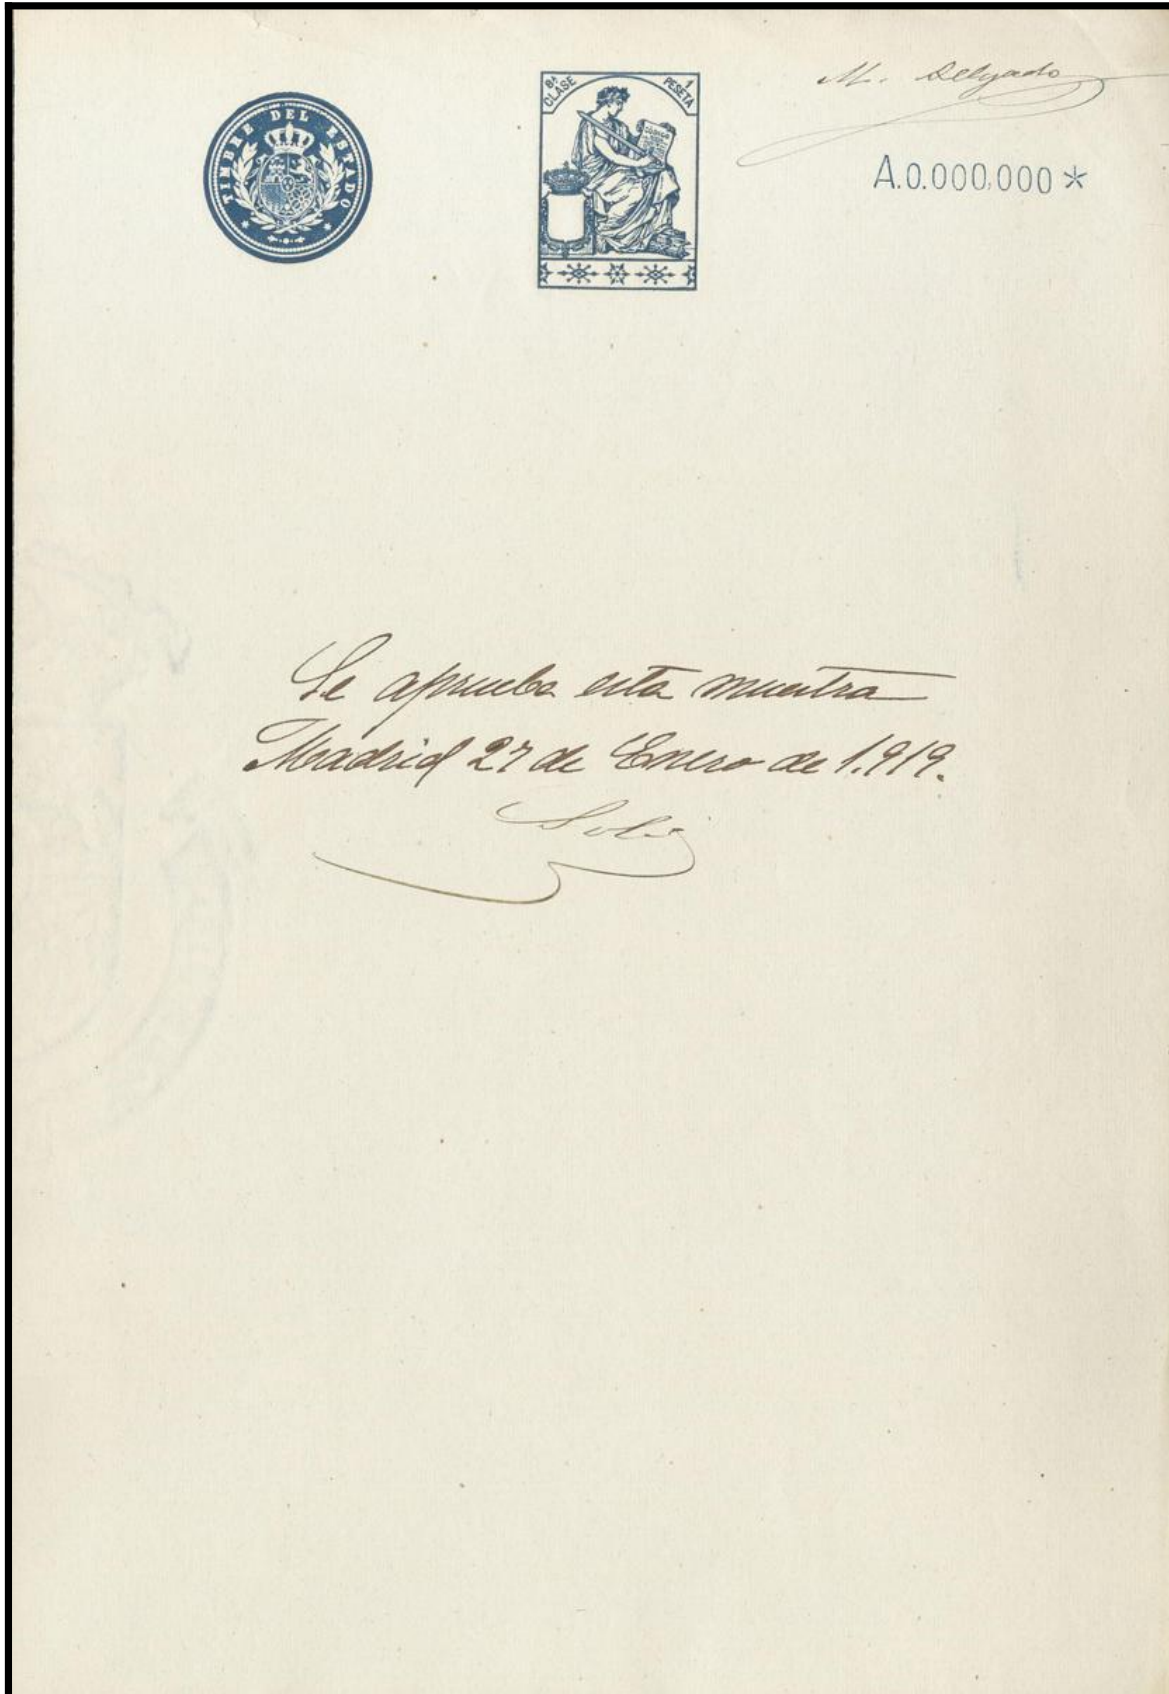 TIMBRE DEL ESTADO
8ª CLASE
1 PESETA
CÓDIGO
M. Delgado
A.0.000,000 *
Se aprueba esta muestra
Madrid 27 de Enero de 1.919.